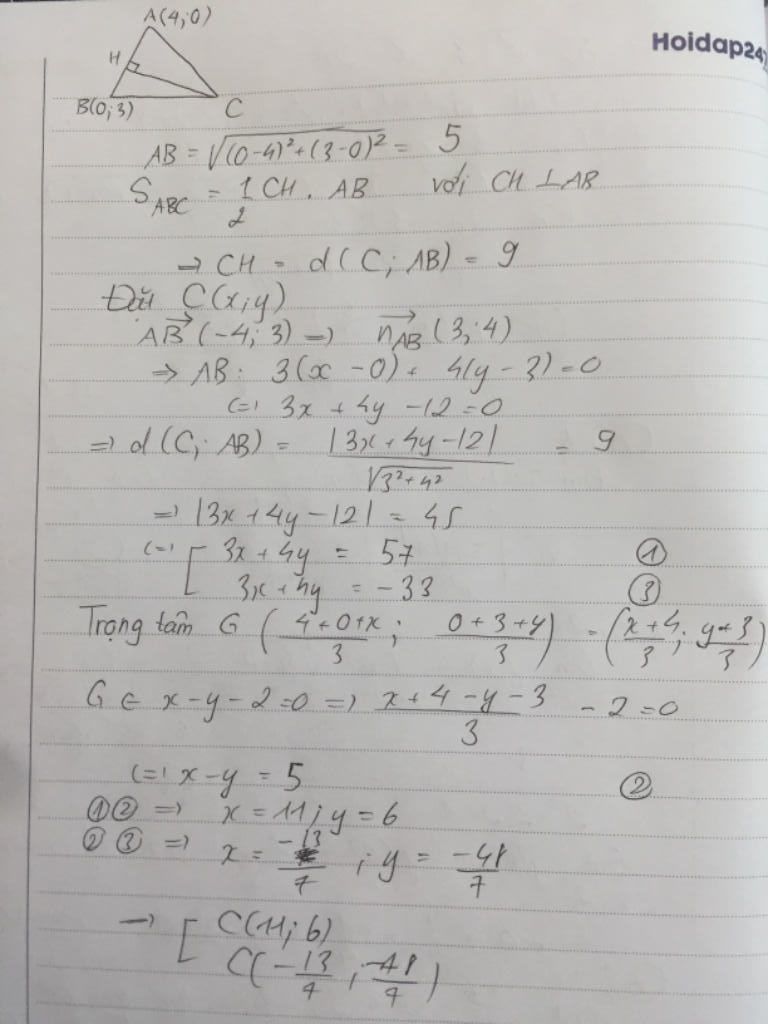 A(4;0)
Hoidap247
H
B(0;3)
C
AB = √(0-4)²+(3-0)² = 5
S_ABC = 1/2 CH . AB với CH ⊥ AB
→ CH = d(C; AB) = 9
Đặt C(x;y)
AB→(-4;3) => n_AB→(3;4)
=> AB: 3(x-0) + 4(y-3) = 0
(=) 3x + 4y - 12 = 0
=> d(C; AB) = |3x+4y-12| / √3²+4² = 9
=> |3x+4y-12| = 45
(=) [ 3x+4y = 57 ①
3x+4y = -33 ③
Trọng tâm G (4+0+x/3 ; 0+3+y/3) = (x+4/3 ; y+3/3)
G ∈ x-y-2=0 => x+4-y-3/3 - 2 = 0
(=) x-y = 5 ②
①② => x = 11; y = 6
② ③ => x = -13/7 ; y = -48/7
→ [ C(11; 6)
C(-13/7 ; -48/7)